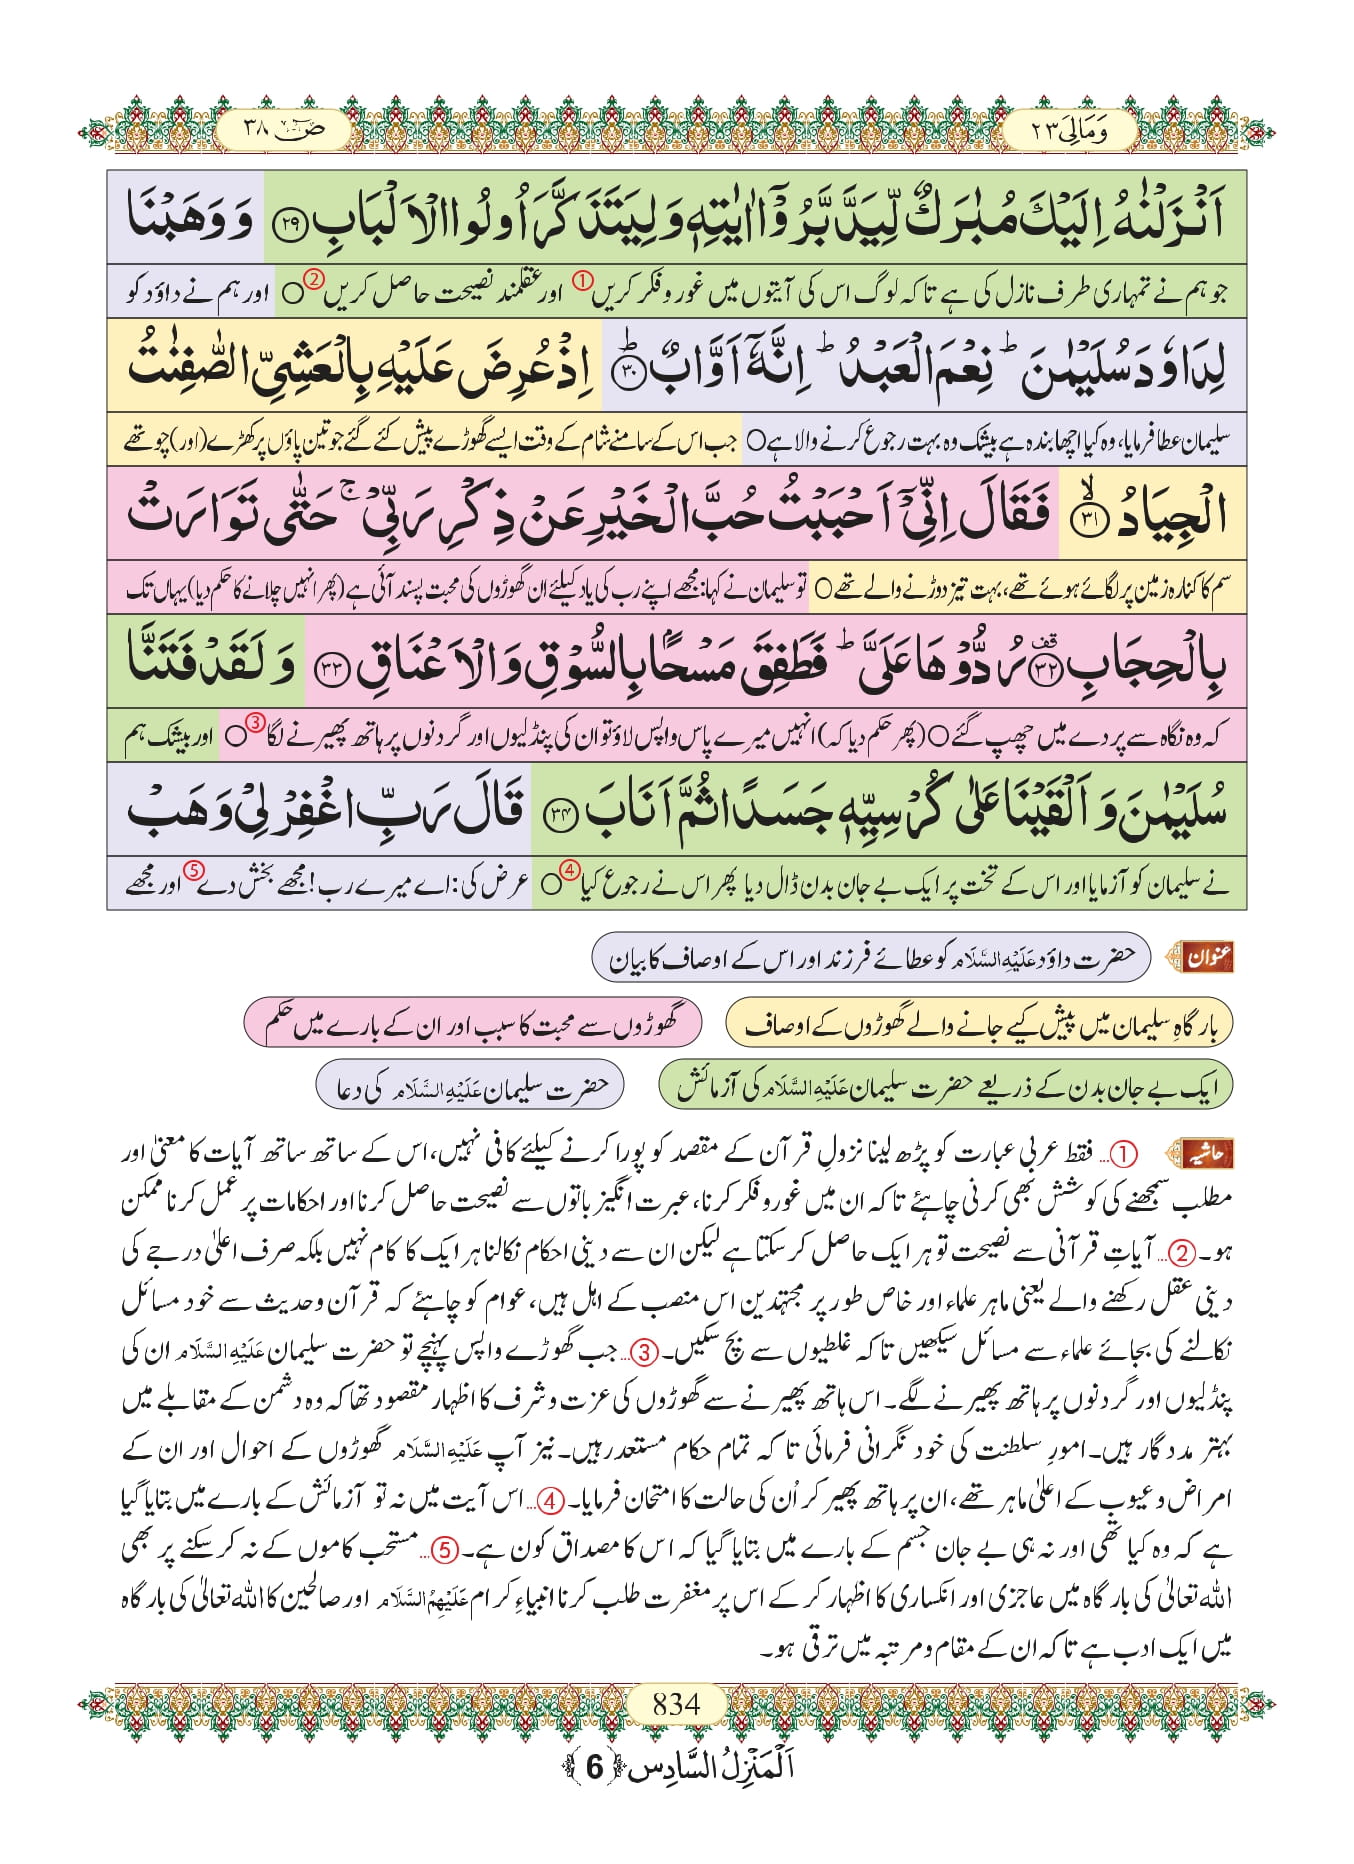 وَمَالِیَ ٢٣
صٓ ٣٨
اَنْزَلْنٰهُ اِلَیْكَ مُبٰرَكٌ لِّیَدَّبَّرُوْۤا اٰیٰتِهٖ وَ لِیَتَذَكَّرَ اُولُوا الْاَلْبَابِ ﴿٢٩﴾ وَ وَهَبْنَا
جو ہم نے تمہاری طرف نازل کی ہے تاکہ لوگ اس کی آیتوں میں غور و فکر کریں① اور عقلمند نصیحت حاصل کریں②○ اور ہم نے داؤد کو
لِدَاوٗدَ سُلَیْمٰنَ ؕ نِعْمَ الْعَبْدُ ؕ اِنَّهٗۤ اَوَّابٌ ﴿٣٠﴾ؕ اِذْ عُرِضَ عَلَیْهِ بِالْعَشِیِّ الصّٰفِنٰتُ
سلیمان عطا فرمایا، وہ کیا اچھا بندہ ہے بیشک وہ بہت رجوع کرنے والا ہے○ جب اس کے سامنے شام کے وقت ایسے گھوڑے پیش کئے گئے جو تین پاؤں پر کھڑے (اور) چوتھے
الْجِیَادُ ﴿٣١﴾ۙ فَقَالَ اِنِّیْۤ اَحْبَبْتُ حُبَّ الْخَیْرِ عَنْ ذِكْرِ رَبِّیْ ۚ حَتّٰى تَوَارَتْ
سم کا کنارہ زمین پر لگائے ہوئے تھے، بہت تیز دوڑنے والے تھے○ تو سلیمان نے کہا: مجھے اپنے رب کی یاد کیلئے ان گھوڑوں کی محبت پسند آئی ہے (پھر انہیں چلانے کا حکم دیا) یہاں تک
بِالْحِجَابِ ﴿٣٢﴾ٙ قف رُدُّوْهَا عَلَیَّ ؕ فَطَفِقَ مَسْحًۢا بِالسُّوْقِ وَ الْاَعْنَاقِ ﴿٣٣﴾ وَ لَقَدْ فَتَنَّا
کہ وہ نگاہ سے پردے میں چھپ گئے○ (پھر حکم دیا کہ) انہیں میرے پاس واپس لاؤ تو ان کی پنڈلیوں اور گردنوں پر ہاتھ پھیرنے لگا③○ اور بیشک ہم
سُلَیْمٰنَ وَ اَلْقَیْنَا عَلٰى كُرْسِیِّهٖ جَسَدًا ثُمَّ اَنَابَ ﴿٣٤﴾ قَالَ رَبِّ اغْفِرْ لِیْ وَ هَبْ
نے سلیمان کو آزمایا اور اس کے تخت پر ایک بے جان بدن ڈال دیا پھر اس نے رجوع کیا④○ عرض کی: اے میرے رب! مجھے بخش دے⑤ اور مجھے
عنوان حضرت داؤد عَلَیْہِ السَّلَام کو عطائے فرزند اور اس کے اوصاف کا بیان
بارگاہِ سلیمان میں پیش کیے جانے والے گھوڑوں کے اوصاف گھوڑوں سے محبت کا سبب اور ان کے بارے میں حکم
ایک بے جان بدن کے ذریعے حضرت سلیمان عَلَیْہِ السَّلَام کی آزمائش حضرت سلیمان عَلَیْہِ السَّلَام کی دعا
حاشیہ ①... فقط عربی عبارت کو پڑھ لینا نزولِ قرآن کے مقصد کو پورا کرنے کیلئے کافی نہیں، اس کے ساتھ ساتھ آیات کا معنیٰ اور
مطلب سمجھنے کی کوشش بھی کرنی چاہئے تاکہ ان میں غور و فکر کرنا، عبرت انگیز باتوں سے نصیحت حاصل کرنا اور احکامات پر عمل کرنا ممکن
ہو۔ ②... آیاتِ قرآنی سے نصیحت تو ہر ایک حاصل کر سکتا ہے لیکن ان سے دینی احکام نکالنا ہر ایک کا کام نہیں بلکہ صرف اعلیٰ درجے کی
دینی عقل رکھنے والے یعنی ماہر علماء اور خاص طور پر مجتہدین اس منصب کے اہل ہیں، عوام کو چاہئے کہ قرآن و حدیث سے خود مسائل
نکالنے کی بجائے علماء سے مسائل سیکھیں تاکہ غلطیوں سے بچ سکیں۔ ③... جب گھوڑے واپس پہنچے تو حضرت سلیمان عَلَیْہِ السَّلَام ان کی
پنڈلیوں اور گردنوں پر ہاتھ پھیرنے لگے۔ اس ہاتھ پھیرنے سے گھوڑوں کی عزت و شرف کا اظہار مقصود تھا کہ وہ دشمن کے مقابلے میں
بہتر مددگار ہیں۔ امورِ سلطنت کی خود نگرانی فرمائی تاکہ تمام حکام مستعد رہیں۔ نیز آپ عَلَیْہِ السَّلَام گھوڑوں کے احوال اور ان کے
امراض و عیوب کے اعلیٰ ماہر تھے، ان پر ہاتھ پھیر کر اُن کی حالت کا امتحان فرمایا۔ ④... اس آیت میں نہ تو آزمائش کے بارے میں بتایا گیا
ہے کہ وہ کیا تھی اور نہ ہی بے جان جسم کے بارے میں بتایا گیا کہ اس کا مصداق کون ہے۔ ⑤... مستحب کاموں کے نہ کر سکنے پر بھی
اللہ تعالیٰ کی بارگاہ میں عاجزی اور انکساری کا اظہار کر کے اس پر مغفرت طلب کرنا انبیاءِ کرام عَلَیْہِمُ السَّلَام اور صالحین کا اللہ تعالیٰ کی بارگاہ
میں ایک ادب ہے تاکہ ان کے مقام و مرتبہ میں ترقی ہو۔
834
اَلْمَنْزِلُ السَّادِس ﴿6﴾